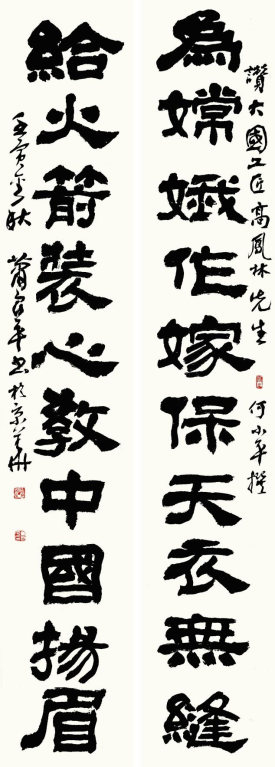 讚大國工匠高鳳林先生 何小平撰
為嫦娥作嫁保天衣無縫
給火箭裝心教中國揚眉
壬寅金秋 平書於京